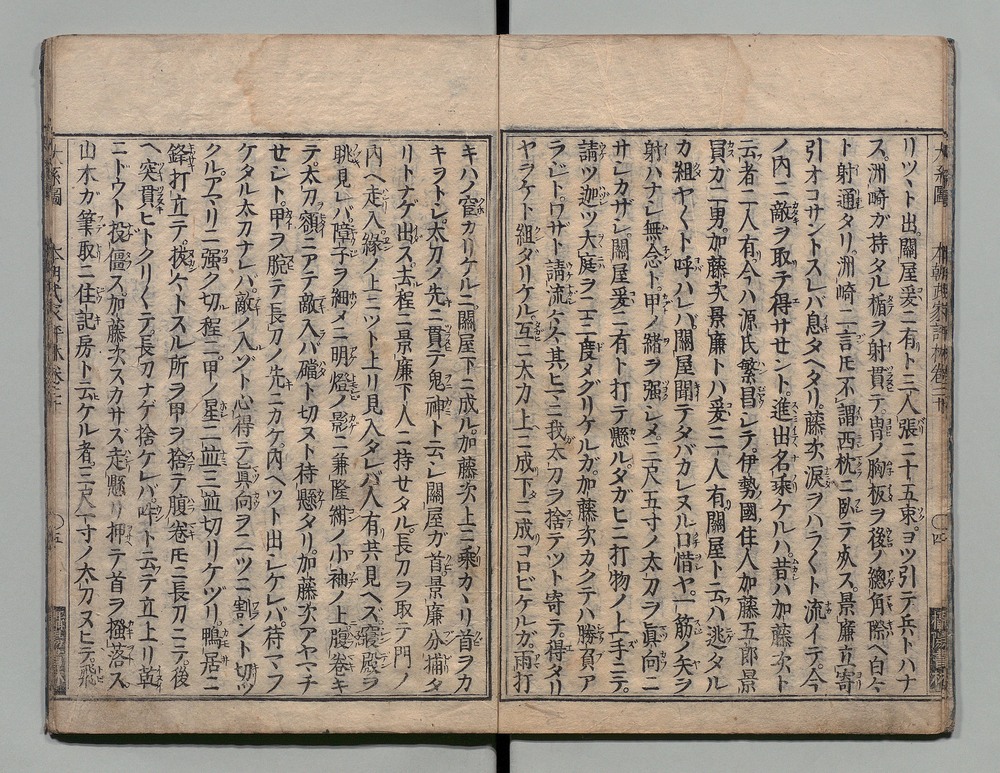 リツヽト出關屋爰ニ有ト三人張ニ十五束ヨツ引テ兵トハナ
ス洲崎ガ持タル楯ヲ射貫テ冑ノ胸板ヲ後ノ總角際ヘ白々
ト射通タリ洲崎ニ言モ不謂西枕ニ臥テ失ス景廉立寄
引オコサントスレバ息タヘタリ藤次涙ヲハラ〳〵ト流イテ今
ノ内ニ敵ヲ取テ得サセントテ進出名乘ケルハ昔ハ加藤次ト
云者二人有今ハ源氏繁昌シテ伊勢國住人加藤五郎景
員ガ二男加藤次景廉トハ爰ニ一人有關屋ト云ハ逃タル
カ組ヤ〳〵ト呼ハレバ關屋聞テタバカレヌル口惜ヤ一筋ノ矢ヲ
射ハナレ無念ト甲ノ緒ヲ强シメ三尺五寸ノ太刀ヲ眞向ニ
サシカザシ關屋爰ニ有ト打テ懸ルタガヒニ打物ノ上手ニテ
請ツ迦ツ大庭ヲ二三度メグリケルガ加藤次カクテハ勝負ア
ラジトワザト請流ケル其ヒマニ我太刀ヲ捨テツト寄テ得タリ
ヤラケト組タリケル互ニ大力上ニ成下ニ成コロビケルガ雨打
キハノ窪カリケルニ關屋下ニ成ル加藤次上ニ乘カヽリ首ヲカ
キヲトシ太刀ノ先ニ貫テ鬼神ト云シ關屋ガ首景廉分捕タ
リトナゲ出ス去程ニ景廉下人ニ持セタル長刀ヲ取テ門ノ
内ヘ走入緣ノ上ニツト上リ見入タレバ人有共見ヘズ寢殿ヲ
眺見レバ障子ヲ細メニ明燈ノ影ニ兼隆紺ノ小袖ノ上腹卷キ
テ太刀額ニアテ敵入バ礑ト切ヌト待懸タリ加藤次アヤマチ
セジト甲ヲ脫テ長刀ノ先ニカケ内ヘツット出シケレバ待マフ
ケタル太刀ナレバ敵ノ入ゾト心得テ眞向ヲ二ツニ割ント切ツ
クルアマリニ强ク切程ニ甲ノ星二並三並切リケヅリ鴨居ニ
鋒打立テ拔ケントスル所ヲ甲ヲ捨テ腹卷モニ長刀ニテ後
ヘ突貫ヒトクリ〳〵テ長刀ナゲ捨ケレバ吽ト云テ立上リ莚
ニドウト役儡ス加藤次スカサズ走懸リ押テ首ヲ搔落ス
山木ガ筆取ニ住記房ト云ケル者三尺一寸ノ太刀ヌヒテ飛